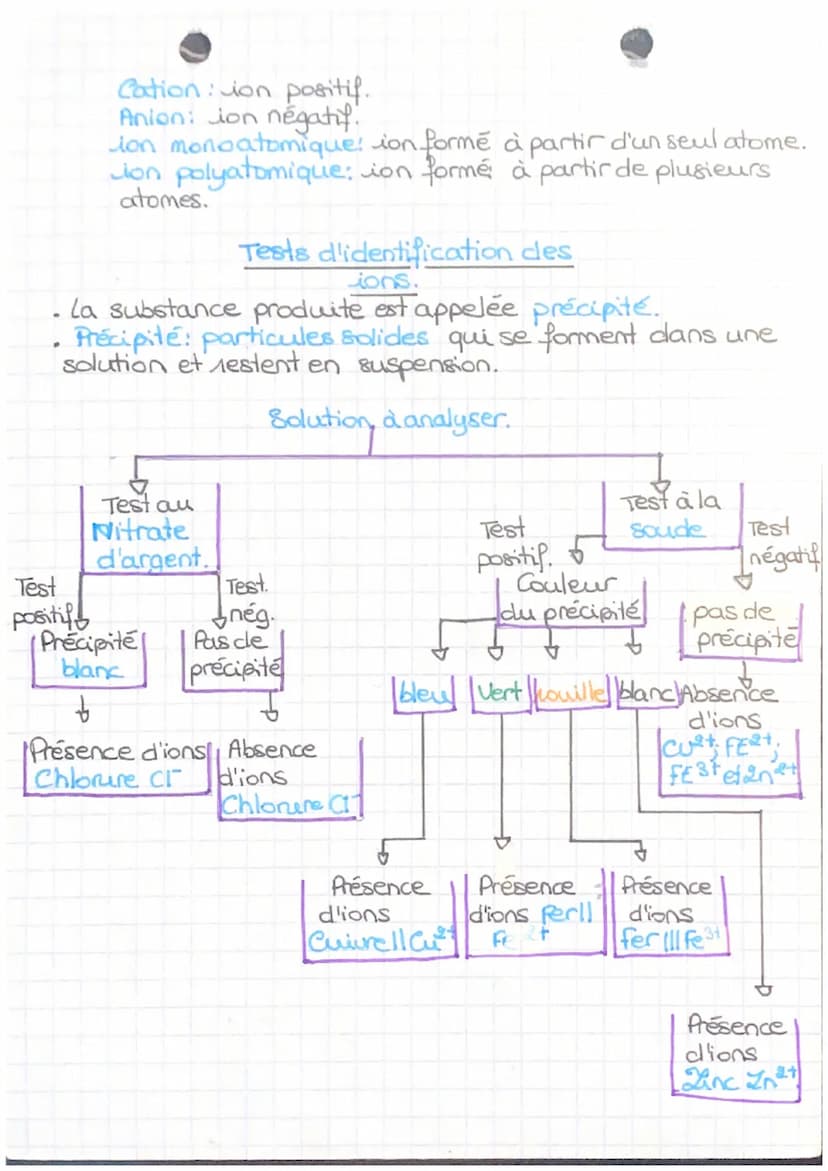 Cation : ion positif.
Anion : ion négatif.
ion monoatomique : ion formé à partir d'un seul atome.
ion polyatomique : ion formé à partir de plusieurs
atomes.
Tests d'identification des
ions.
. La substance produite est appelée précipité.
. Précipité : particules solides qui se forment dans une
solution et restent en suspension.
Solution à analyser.
Test au
Nitrate
d'argent.
Test
positif
Précipité
blanc
Présence d'ions
Chlorure Cl⁻
Test.
nég.
Pas de
précipité
Absence
d'ions
Chlorure Cl⁻
Test à la
soude
Test
positif.
Couleur
du précipité
bleu
Vert
rouille
blanc
Test
négatif
pas de
précipité
Absence
d'ions
Cu²⁺; FE²⁺;
FE³⁺ et Zn²⁺
Présence
d'ions
Cuivre II Cu²⁺
Présence
d'ions Fer II
Fe²⁺
Présence
d'ions
fer III Fe³⁺
Présence
d'ions
Zinc Zn²⁺